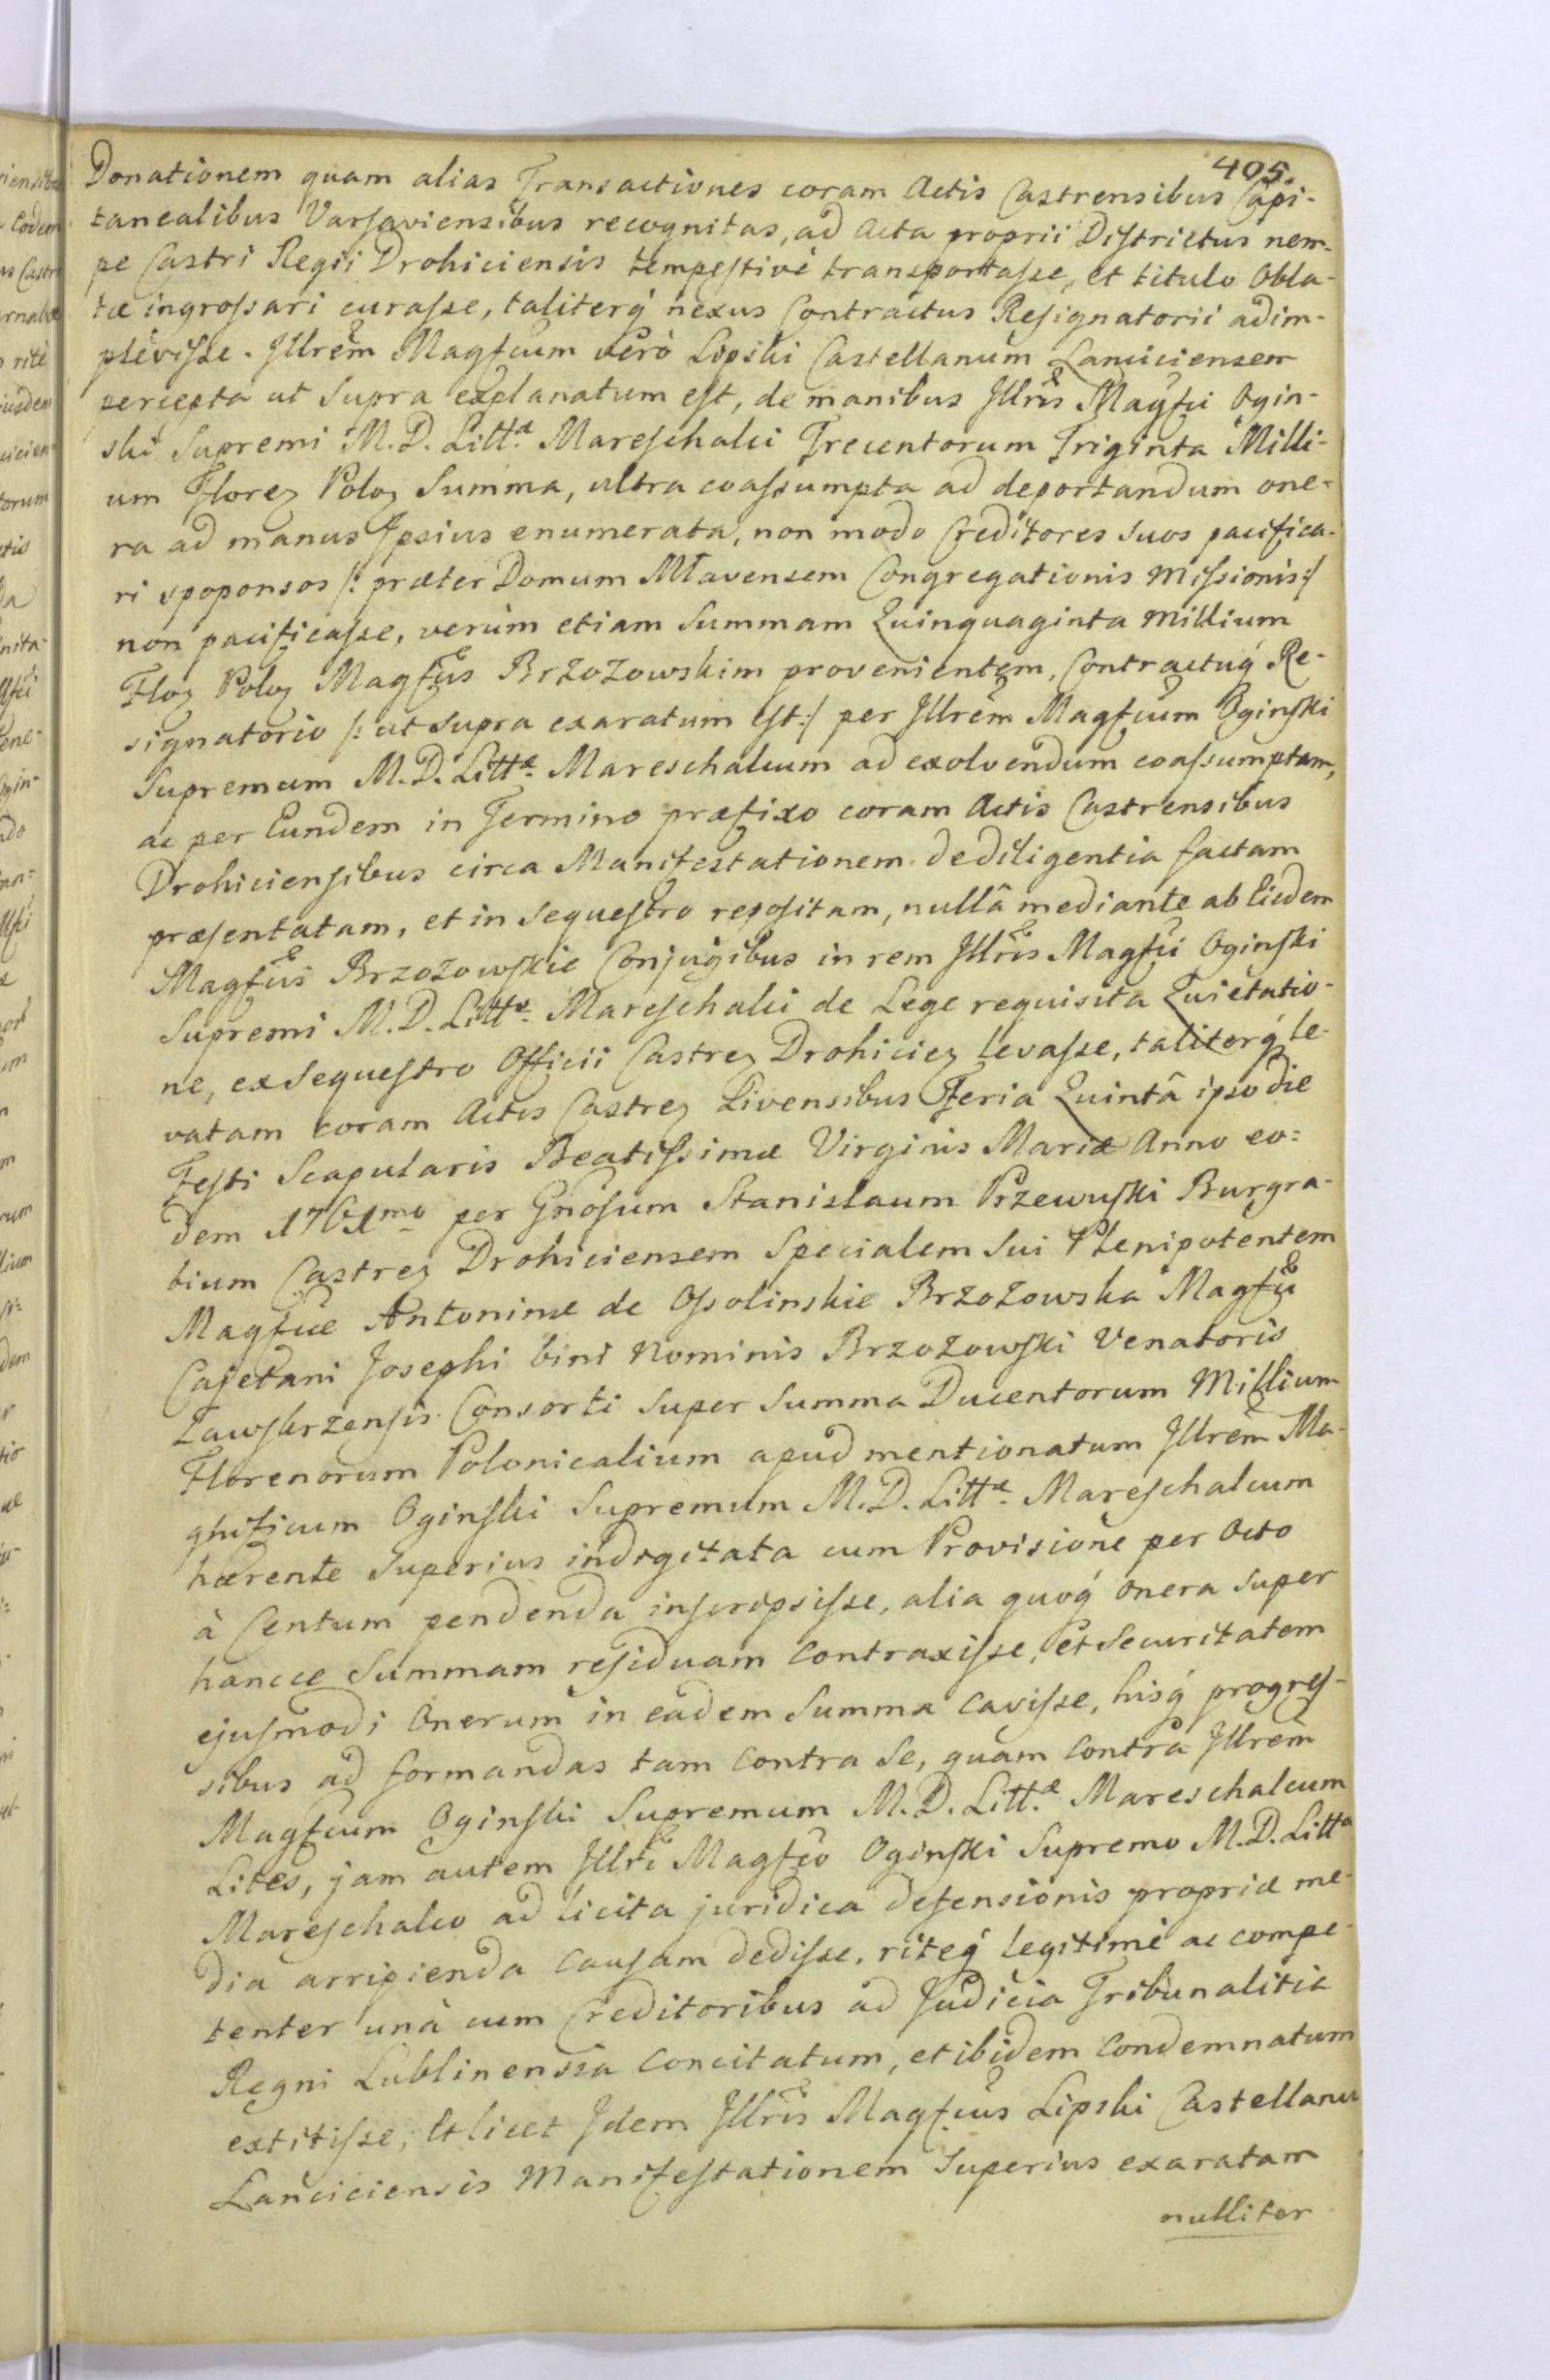 405.
Donationem quam alias Transactiones coram Actis Castrensibus Capi-
tanealibus Varsaviensibus recognitas, ad Acta proprii Districtus nem-
pe Castri Regii Drohiciensis tempestivè transportasse, et titulo Obla-
tæ ingrossari curasse, taliterq́ nexus Contractus Resignatorii adim-
plévisse. Jllrem̃ Magfcum verò Lipski Castellanum Lanciciensem
percepta ut Supra explanatum est, de manibus Jllris̃ Magfci Ogin-
ski Supremi M.D. Littæ Mareschalci Trecentorum Triginta Milli-
um Florez Poloz Summa, ultra coassumpta ad deportandum one-
ra ad manus Jpsius enumerata, non modo Creditores suos pacifica-
ri spoponsos /: præter Domum Mlavensem Congregationis Missionis :/
non pacificasse, verùm etiam Summam Quinquaginta Millium
Floz Poloz Magfcis Brzozowskim provenientem, Contractuq́ Re-
signatorio /: ut supra exaratum est :/ per Jllrem̃ Magfcum Oginski
Supremum M.D. Littæ Mareschalcum ad exolvendum coassumptam,
ac per Eundem in Termino præfixo coram Actis Castrensibus
Drohiciensibus circa Manifestationem de diligentia factam
præsentatam, et in Sequestro repositam, nullâ mediante ab Eisdem
Magfcis Brzozowskie Conjugibus in rem Jllris̃ Magfci Oginski
Supremi M.D. Littæ Mareschalci de Lege requisita Quietatio-
ne, ex Sequestro Officii Castrez Drohiciez levasse, taliterq́ le-
vatam coram Actis Castrez Livensibus Feria Quintâ ipso die
Festi Scapularis Beatissimæ Virginis Mariæ Anno eo=
dem 1761mo per Gnosum Stanislaum Przewuski Burgra-
bium Castrez Drohiciensem Specialem sui Plenipotentem
Magfcæ Antoninæ de Ossolinskie Brzozowska Magfci
Cajetani Josephi bini Nominis Brzozowski Venatoris
Zawskrzensis Consorti super Summa Ducentorum Millium
Florenorum Polonicalium apud mentionatum Jllrem̃ Ma-
gnificum Oginski Supremum M.D. Littæ Mareschalcum
hærente Superius indigitata cum Provisione per Octo
à Centum pendenda inscripsisse, alia quoq́ Onera super
hancce Summam residuam contraxisse, et Securitatem
ejusmodi Onerum in eadem Summa cavisse, hisq́ progres-
sibus ad formandas tam contra Se, quàm contra Jllrem̃
Magfcum Oginski Supremum M.D. Littæ Mareschalcum
Lites, jam autem Jllri̇̃ Magfco Oginski Supremo M.D. Littæ
Mareschalco ad licita juridica defensionis propriæ me-
dia arripienda causam dedisse, ritèq́ legitimè ac compe-
tenter unà cum Creditoribus ad Judicia Tribunalitia
Regni Lublinensia Concitatum, et ibidem condemnatum
extitisse; et licet Jdem Jllris̃ Magfcus Lipski Castellanus
Lanciciensis Manifestationem Superius exaratam
nulliter